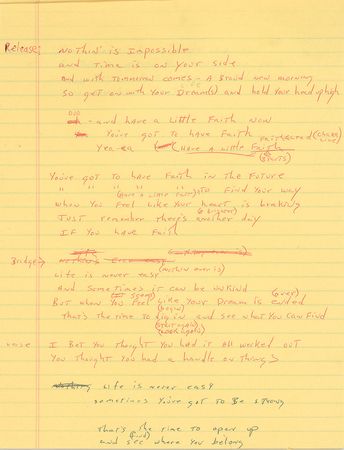 Release: Nothin' is Impossible
and Time is on Your side
and with Tomorrow comes - A Brand new morning
So get on with Your Dream(s) and hold Your head up high
ooo - and Have a Little Faith now
You've got To have Faith
Yea-ea (Have a little Faith)
You've got To have Faith in the Future
" " " " " To Find Your way
(Have a little Faith)
when You Feel Like Your heart is breaking
JUST remember There's another day
IF You have Faith
Bridge:
Life is never easy (nothin ever is)
And Sometimes it can be unkind
But when You Feel Like Your Dream is ended (over)
(begin)
That's the Time To and see what You can Find
(START again)
verse I Bet You Thought You had it all worked out
You Thought You had a handle on Things
Life is never easy
sometimes You've got To Be strong
That's the Time To open up
(find)
and see where You belong